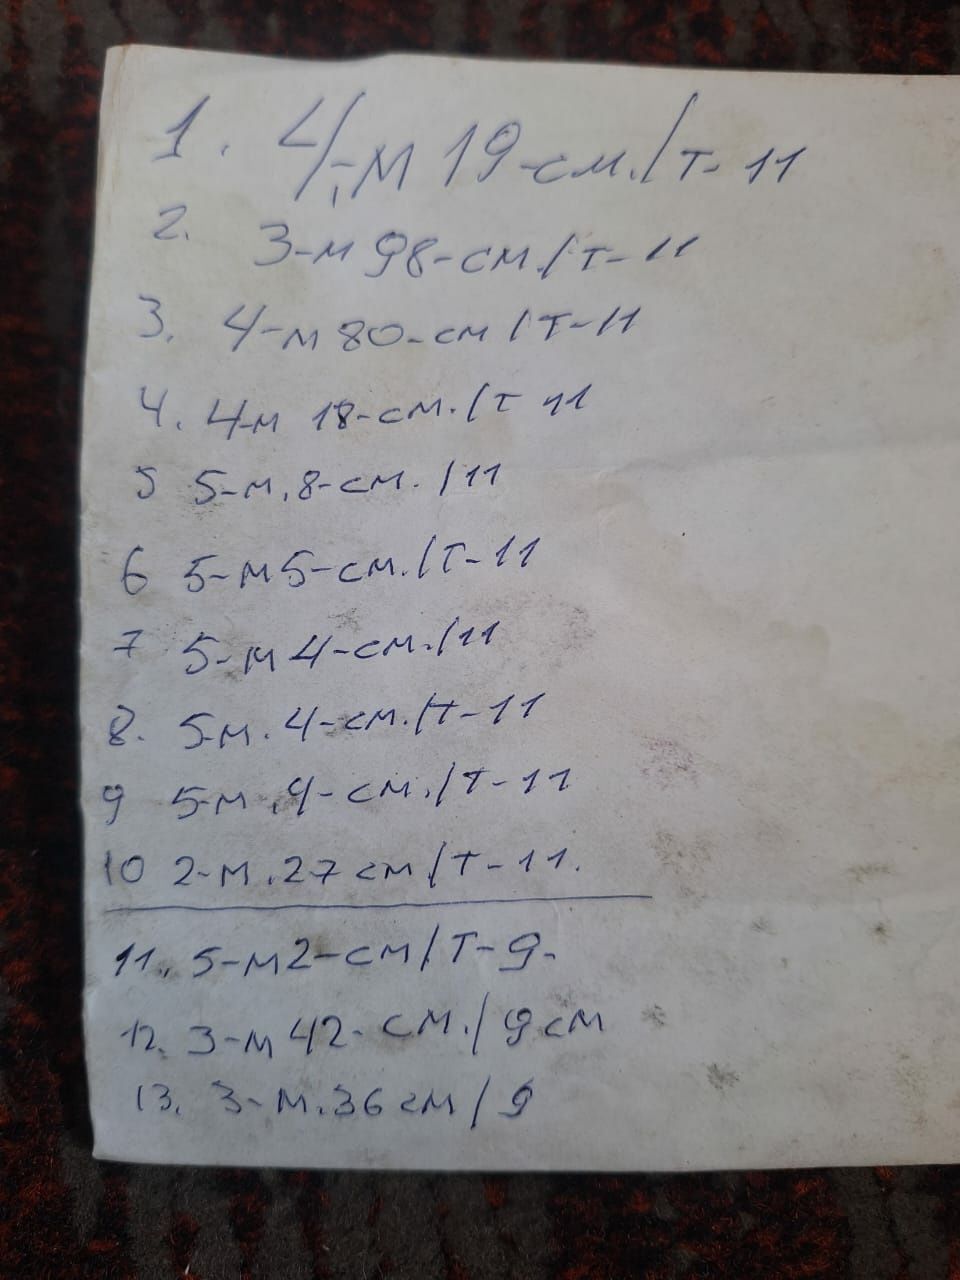 1. 4,-м 19-см./т-11
2. 3-м 98-см./т-11
3. 4-м 80-см/т-11
4. 4-м 18-см./т 11
5 5-м,8-см./11
6 5-м5-см./т-11
7 5-м 4-см./11
8. 5-м.4-см./т-11
9 5-м,4-см./т-11
10 2-м.27см/т-11.
11. 5-м2-см/т-9-
12. 3-м 42-см./9см
13. 3-м.36см/9